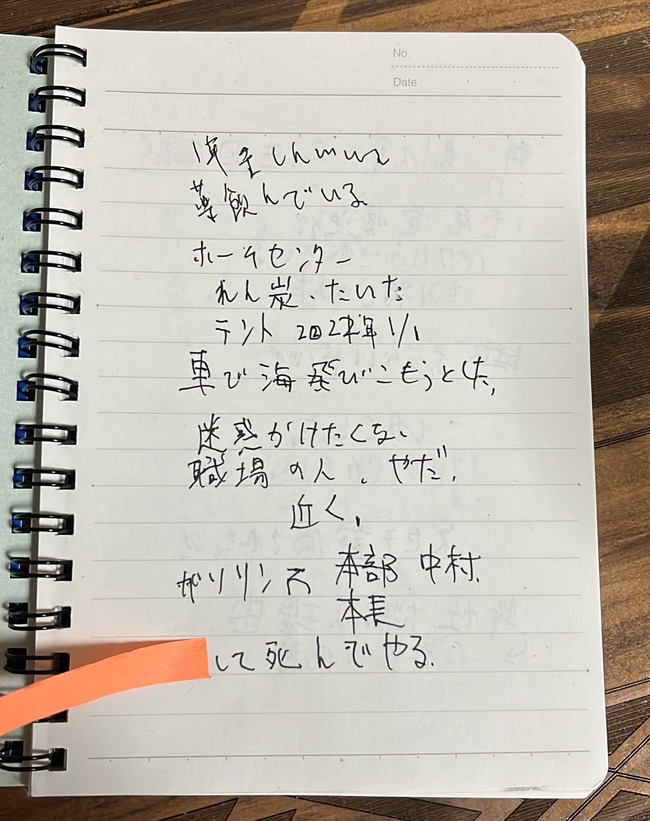 No.
Date
薬飲んでいる。
ホームセンター
れん炭、たいた
テント 2024年 1/1
車で海飛びこもうとした、
迷惑かけたくない
職場の人、やだ、
近く、
本部 中村、
本長
して死んでやる。